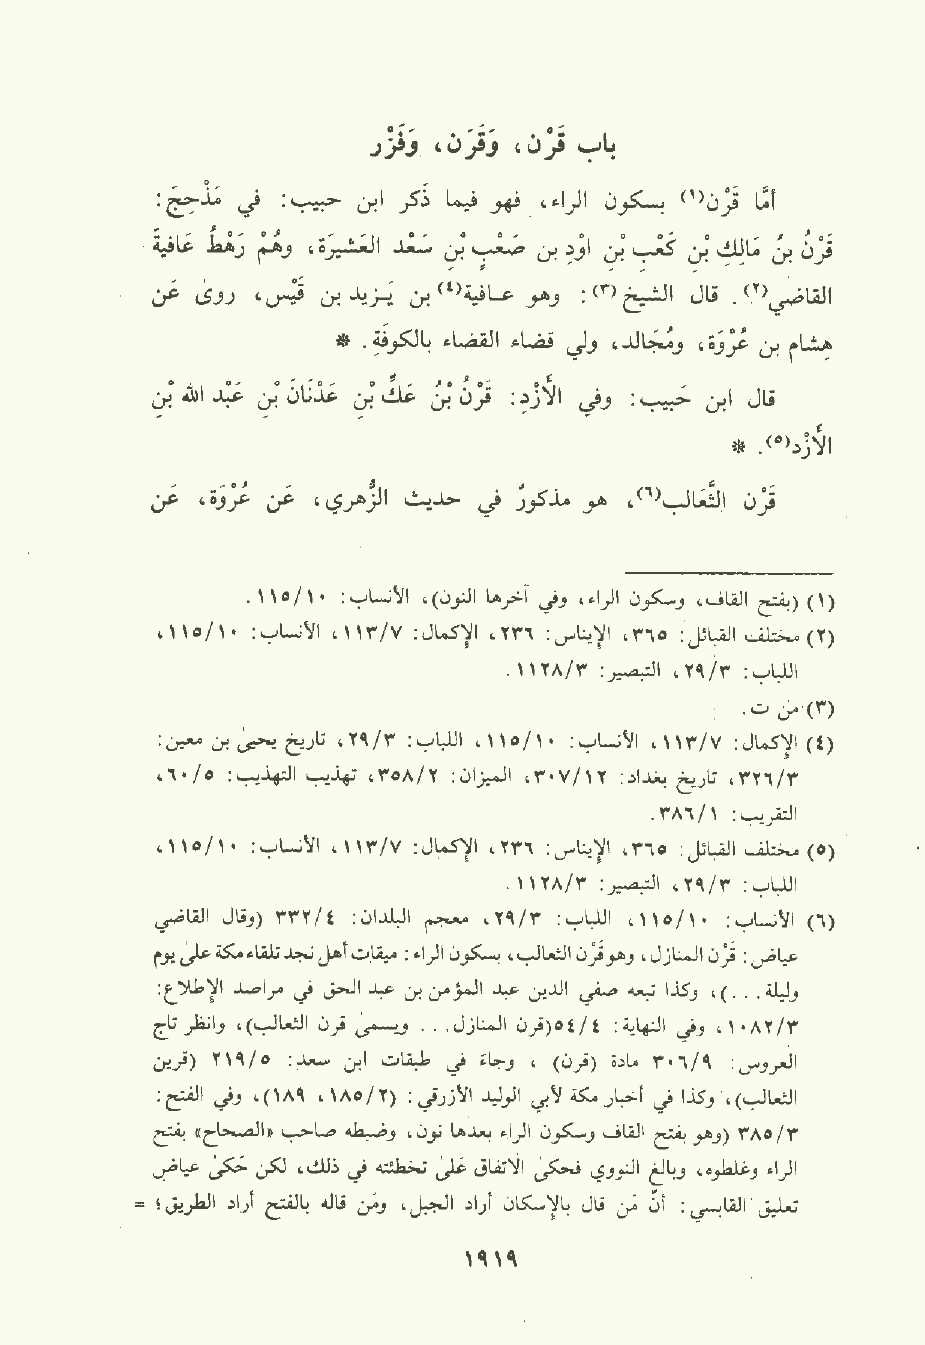 باب قَرْن، وَقَرَن، وَفَزْر
أمَّا قَرْن(١) بسكون الراء، فهو فيما ذَكَر ابن حبيب: في مَذْحِجَ:
قَرْنُ بنُ مَالِكِ بْنِ كَعْبِ بْنِ اوْدِ بن صَعْبِ بْنِ سَعْد العَشيرَة، وهُمْ رَهْطُ عَافيَةَ
القاضي(٢). قال الشيخ(٣): وهو عـافية(٤) بن يَـزيد بن قَيْس، روىٰ عَن
هشام بن عُرْوَة، ومُجَالد، وولي قضاء القضاء بالكوفَةِ. *
قال ابن حَبيب: وفي الأَزْدِ: قَرْنُ بْنُ عَكِّ بْنِ عَدْنَانَ بْنِ عَبْد الله بْنِ
الأَزْد(٥). *
قَرْن الثَّعَالب(٦)، هو مذكورٌ في حديث الزُّهري، عَن عُرْوَة، عَن
(١) (بفتح القاف، وسكون الراء، وفي آخرها النون)، الأنساب: ١١٥/١٠.
(٢) مختلف القبائل: ٣٦٥، الإيناس: ٢٣٦، الإكمال: ١١٣/٧، الأنساب: ١١٥/١٠،
اللباب: ٢٩/٣، التبصير: ١١٢٨/٣.
(٣) من ت.
(٤) الإكمال: ١١٣/٧، الأنساب: ١١٥/١٠، اللباب: ٢٩/٣، تاريخ يحيىٰ بن معين:
٣٢٦/٣، تاريخ بغداد: ٣٠٧/١٢، الميزان: ٣٥٨/٢، تهذيب التهذيب: ٦٠/٥،
التقريب: ٣٨٦/١.
(٥) مختلف القبائل: ٣٦٥، الإيناس: ٢٣٦، الإكمال: ١١٣/٧، الأنساب: ١١٥/١٠،
اللباب: ٢٩/٣، التبصير: ١١٢٨/٣.
(٦) الأنساب: ١١٥/١٠، اللباب: ٢٩/٣، معجم البلدان: ٣٣٢/٤ (وقال القاضي
عياض: قَرْن المنازل، وهو قَرْن الثعالب، بسكون الراء: ميقات أهل نجد تلقاء مكة علىٰ يوم
وليلة...)، وكذا تبعه صفي الدين عبد المؤمن بن عبد الحق في مراصد الإطلاع:
١٠٨٢/٣، وفي النهاية: ٥٤/٤(قرن المنازل... ويسمىٰ قرن الثعالب)، وانظر تاج
العروس: ٣٠٦/٩ مادة (قرن) ، وجاء في طبقات ابن سعد: ٢١٩/٥ (قرين
الثعالب)، وكذا في أخبار مكة لأبي الوليد الأزرقي: (١٨٥/٢، ١٨٩)، وفي الفتح:
٣٨٥/٣ (وهو بفتح القاف وسكون الراء بعدها نون، وضبطه صاحب «الصحاح» بفتح
الراء وغلطوه، وبالغ النووي فحكىٰ الاتفاق علىٰ تخطئته في ذلك، لكن حَكىٰ عياض
تعليق القابسي: أنَّ مَن قال بالإسكان أراد الجبل، ومَن قاله بالفتح أراد الطريق؛ =
١٩١٩